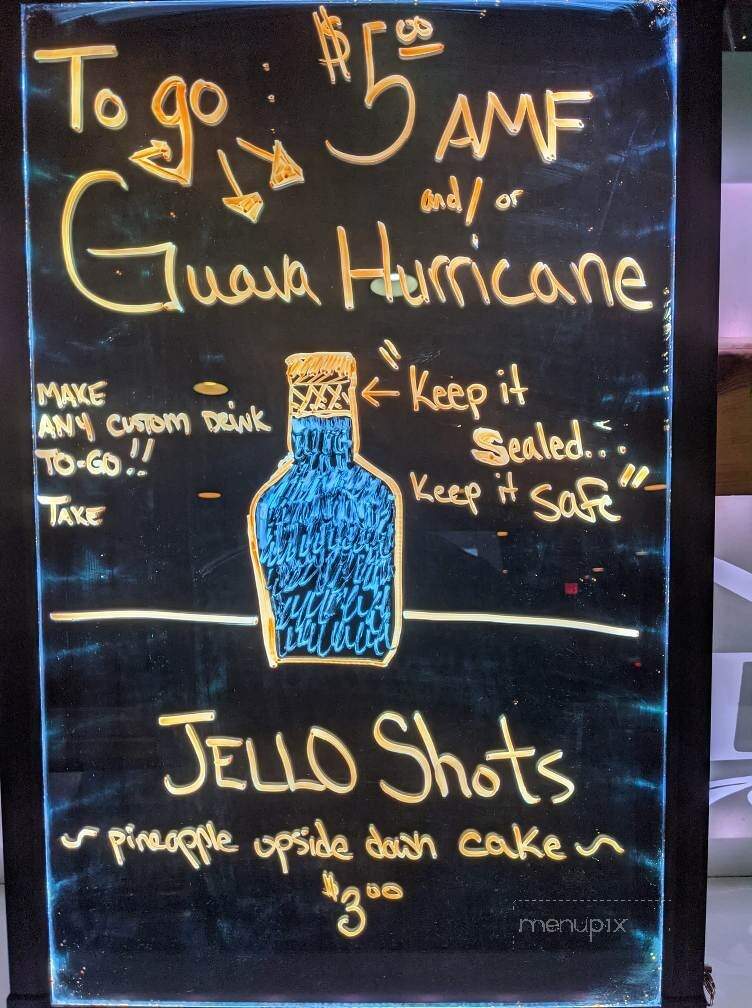 To go : $5.00 AMF
and/or
Guava Hurricane
MAKE
ANY CUSTOM DRINK
TO-GO!!
TAKE
XXXX
"Keep it
Sealed...
Keep it Safe"
JELLO Shots
~ pineapple upside down cake ~
$3.00
menupix